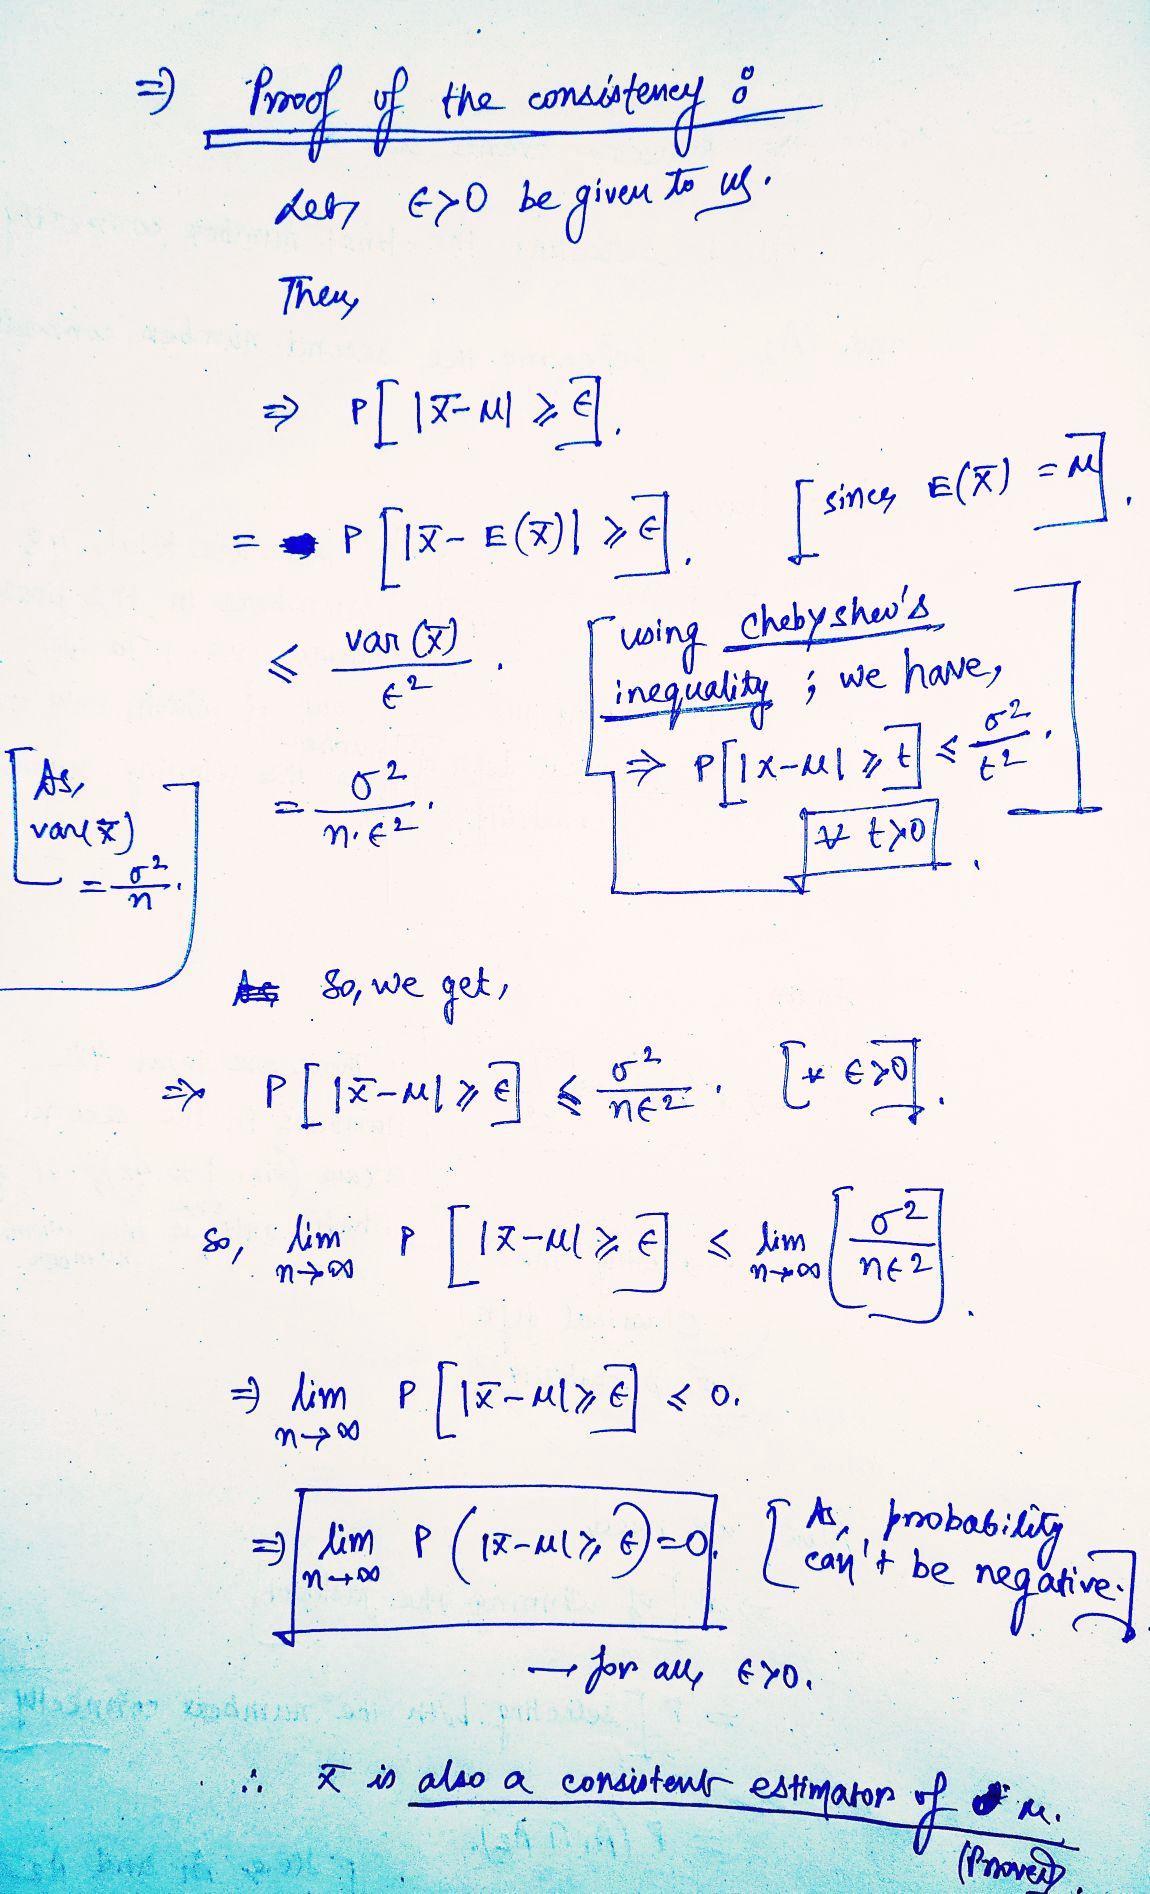 ⇒ Proof of the consistency :
Let, ϵ>0 be given to us.
Then,
⇒ P[ |x̄-μ| ≥ ϵ].
= P [|x̄- E(x̄)| ≥ ϵ]. [since, E(x̄) = μ].
≤ var(x̄)/ϵ². [using Chebyshev's
inequality ; we have,
⇒ P[|x-μ| ≥ t] ≤ σ²/t².
∀ t>0].
= σ²/n.ϵ².
[As,
var(x̄)
= σ²/n.]
So, we get,
⇒ P[ |x̄-μ| ≥ ϵ] ≤ σ²/nϵ². [∀ ϵ>0].
So, lim n→∞ P [|x̄-μ| ≥ ϵ] ≤ lim n→∞ [σ²/nϵ²].
⇒ lim n→∞ P [|x̄-μ| ≥ ϵ] ≤ 0.
⇒ lim n→∞ P (|x̄-μ| ≥ ϵ)=0. [As, probability
can't be negative.]
→ for all, ϵ>0.
∴ x̄ is also a consistent estimator of μ.
(Proved).